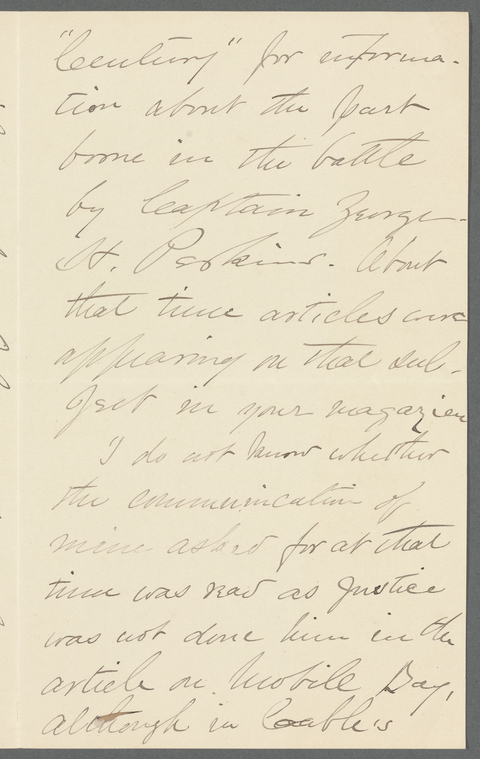 "Century" for informa-
tion about the part
borne in the battle
by Captain George
H. Perkins. About
that time articles were
appearing on that sub-
ject in your magazien
I do not know whether
the communication of
mine asked for at that
time was read as Justice
was not done him in the
article on Mobile Bay,
although in Cable's